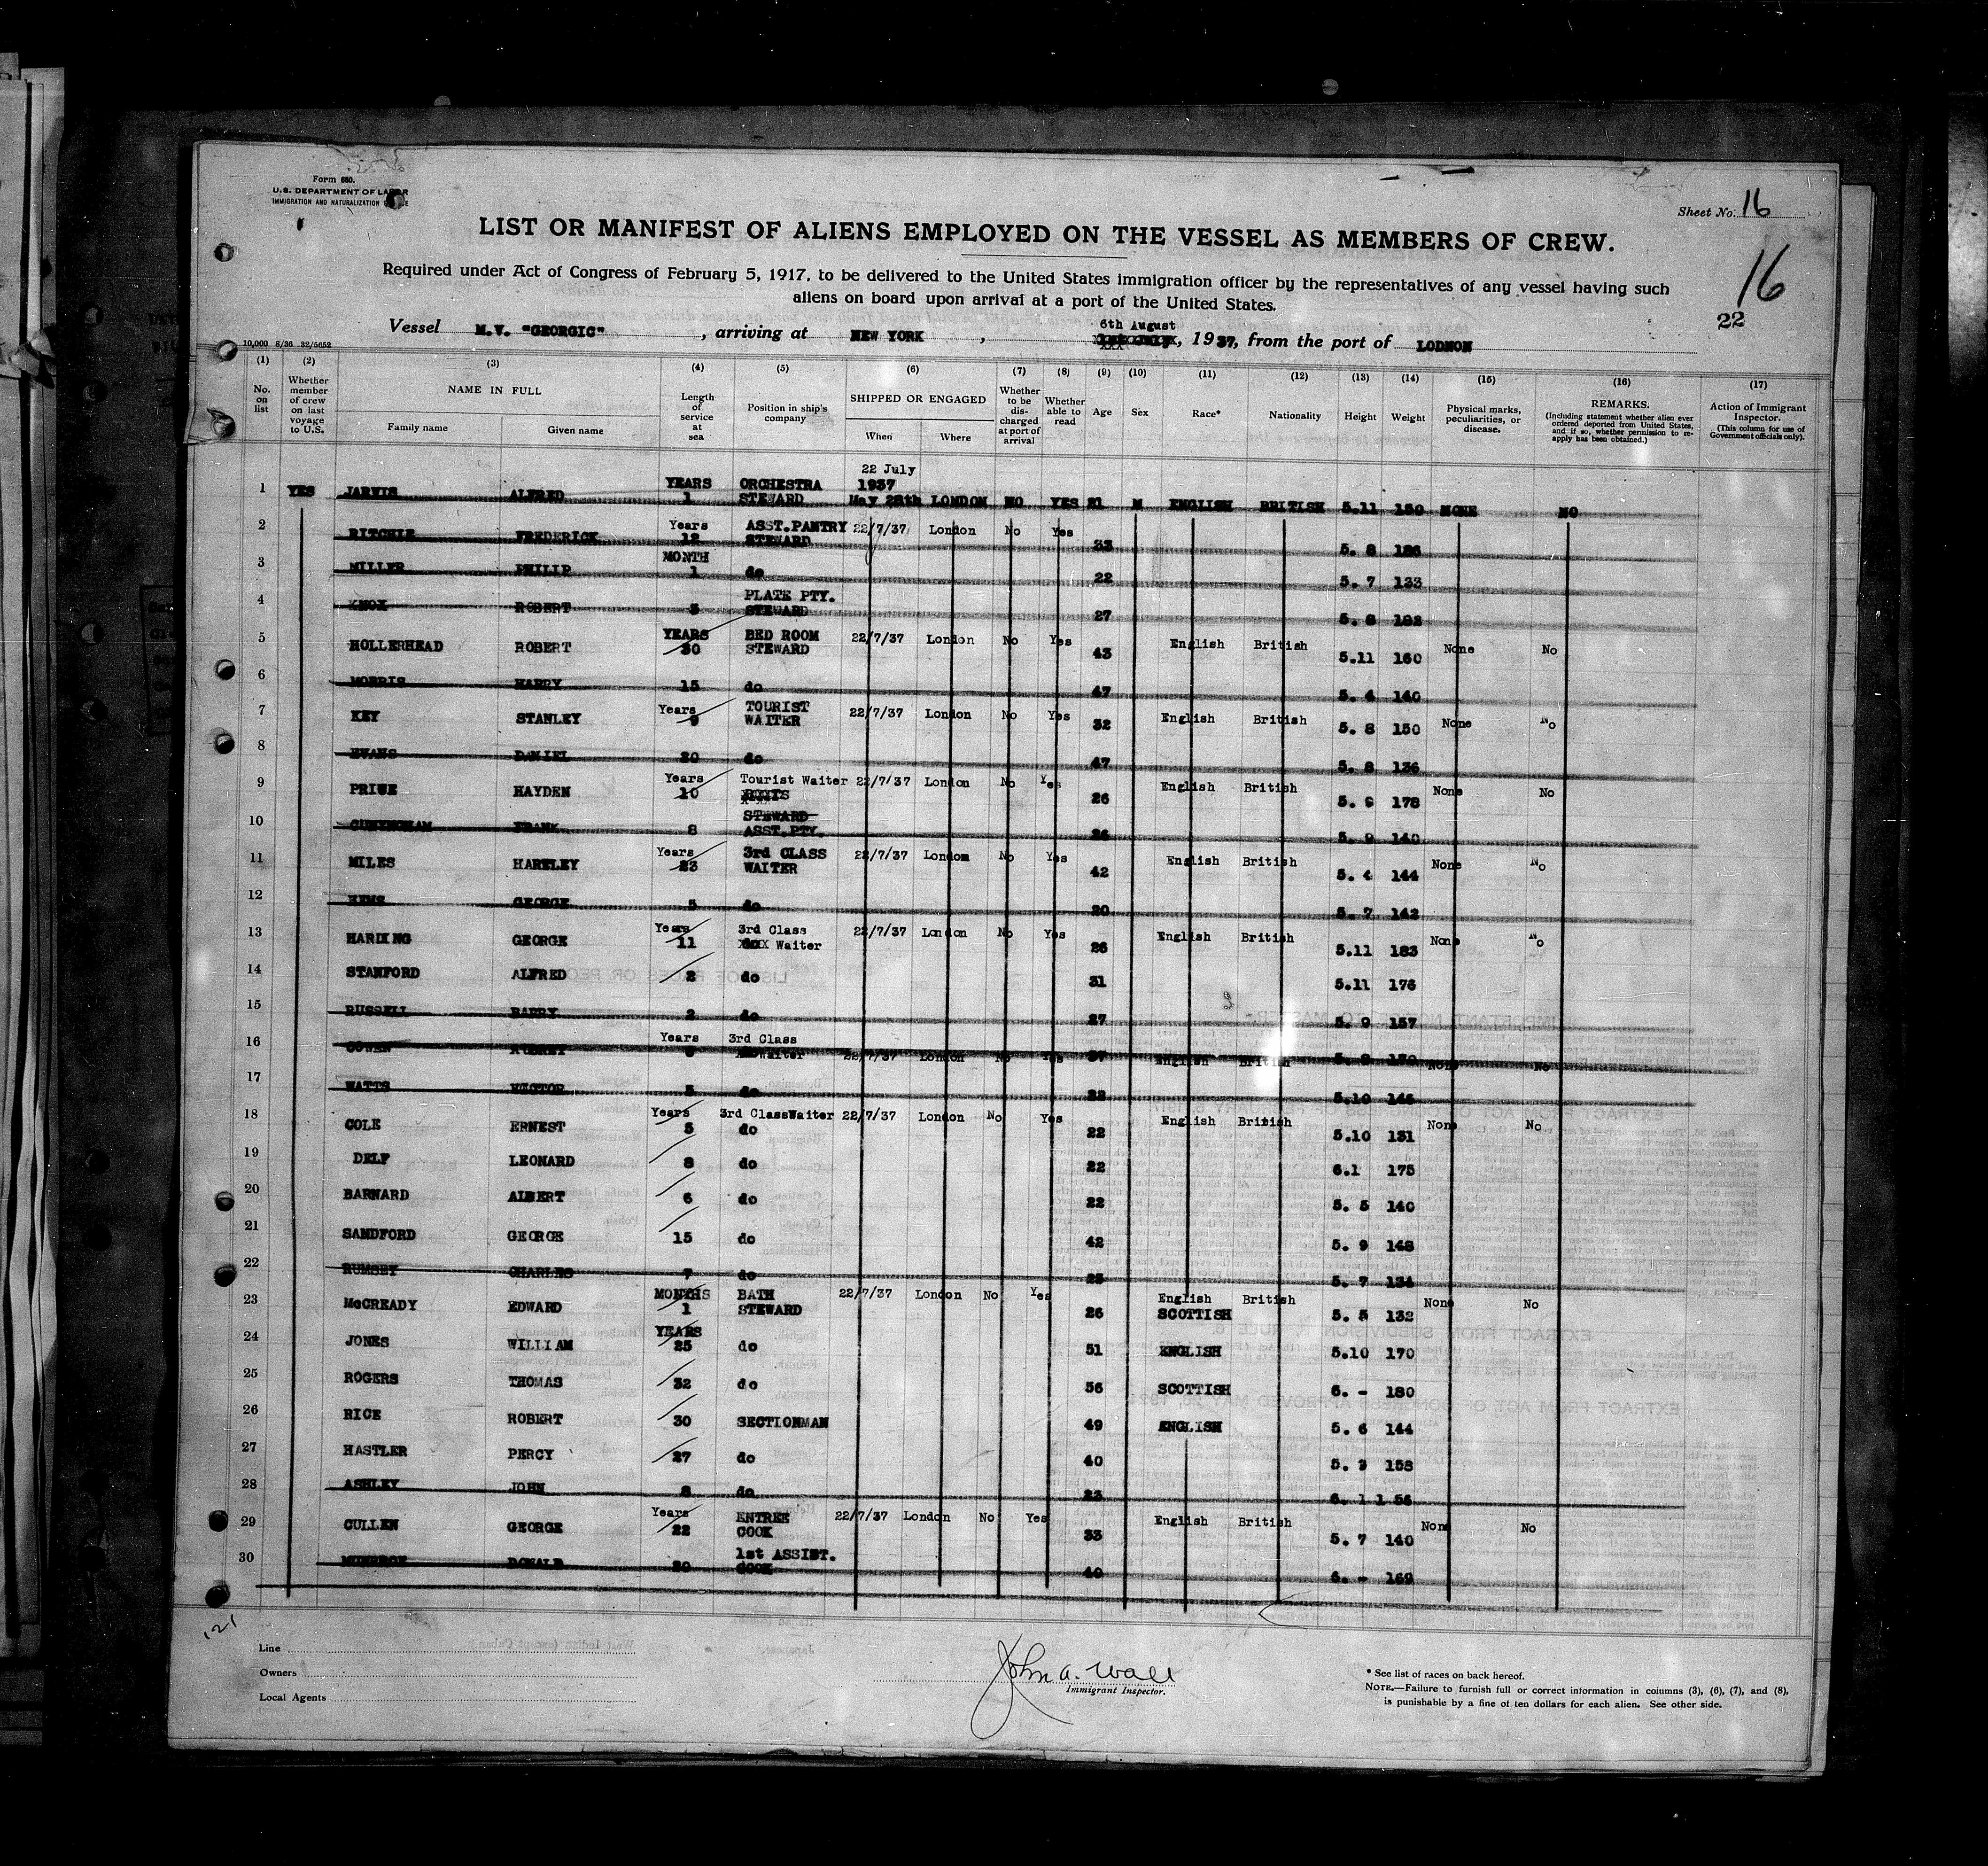 Form 680.
U.S. DEPARTMENT OF LABOR
IMMIGRATION AND NATURALIZATION
Sheet No. 16
LIST OR MANIFEST OF ALIENS EMPLOYED ON THE VESSEL AS MEMBERS OF CREW.
16
Required under Act of Congress of February 5, 1917, to be delivered to the United States immigration officer by the representatives of any vessel having such
aliens on board upon arrival at a port of the United States.
22
6th August
Vessel M.V. "GEORGIC", arriving at NEW YORK, 1937, from the port of LODNON
10,000 8/36 32/5652
(1) No. on list (2) Whether member of crew on last voyage to U.S. (3) NAME IN FULL Family name Given name (4) Length of service at sea (5) Position in ship's company (6) SHIPPED OR ENGAGED When Where (7) Whether to be discharged at port of arrival (8) Whether able to read (9) Age (10) Sex (11) Race* (12) Nationality (13) Height (14) Weight (15) Physical marks, peculiarities, or disease. (16) REMARKS. (Including statement whether alien ever ordered deported from United States, and if so, whether permission to reapply has been obtained.) (17) Action of Immigrant Inspector. (This column for use of Government officials only).
22 July
YEARS ORCHESTRA 1937
1 YES JARVIS ALFRED 1 STEWARD May 28th LONDON NO YES 21 M ENGLISH BRITISH 5.11 150 NONE NO
Years ASST.PANTRY 22/7/37 London No Yes
2 RITCHIE FREDERICK 12 STEWARD 33 5. 8 186
MONTH
3 MILLER PHILIP 1 do 22 5. 7 133
PLATE PTY.
4 KNOX ROBERT STEWARD 27 5. 8
YEARS BED ROOM 22/7/37 London No Yes English British None No
5 HOLLERHEAD ROBERT 30 STEWARD 43 5.11 160
6 MORRIS HARRY 15 do 47 5. 4 140
Years TOURIST 22/7/37 London No Yes English British None No
7 KEY STANLEY 9 WAITER 32 5. 8 150
8 EVANS DANIEL 20 do 47 5. 8 136
Years Tourist Waiter 22/7/37 London No Yes English British None No
9 PRIUE HAYDEN 10 BOOTS 26 5. 9 178
STEWARD
10 CUNYNGHAM FRANK 8 ASST.PTY. 26 5. 9 140
Years 3rd CLASS 22/7/37 London No Yes English British None No
11 MILES HARTLEY 23 WAITER 42 5. 4 144
12 HEMS GEORGE 5 do 20 5. 7 142
Years 3rd Class 22/7/37 London No Yes English British None No
13 HARDING GEORGE 11 Waiter 26 5.11 183
14 STANFORD ALFRED 2 do 31 5.11 176
15 RUSSELL HARRY 2 do 27 5. 9 157
Years 3rd Class
16 COWEN AUBREY Waiter 22/7/37 London No Yes English British None No
17 WATTS VICTOR 5 do 22 5.10 146
Years 3rd ClassWaiter 22/7/37 London No Yes English British None No
18 COLE ERNEST 5 do 22 5.10 131
19 DELF LEONARD 8 do 22 6.1 175
20 BARNARD ALBERT 6 do 22 5. 5 140
21 SANDFORD GEORGE 15 do 42 5. 9 148
22 RUMSEY CHARLES 7 do 25 5. 7 134
MONTHS BATH 22/7/37 London No Yes English British None No
23 McCREADY EDWARD 1 STEWARD 26 SCOTTISH 5. 5 132
YEARS
24 JONES WILLIAM 25 do 51 ENGLISH 5.10 170
25 ROGERS THOMAS 32 do 56 SCOTTISH 6. - 180
26 RICE ROBERT 30 SECTIONMAN 49 ENGLISH 5. 6 144
27 HASTLER PERCY 27 do 40 5. 3 158
28 ASHLEY JOHN 8 do 23 6. 1 156
Years ENTREE 22/7/37 London No Yes English British None No
29 CULLEN GEORGE 22 COOK 33 5. 7 140
1st ASSIST.
30 MUNROE DONALD 20 COOK 40 6. - 169
121
Line
Owners
Local Agents
John A. Wall
Immigrant Inspector.
* See list of races on back hereof.
NOTE.—Failure to furnish full or correct information in columns (3), (6), (7), and (8),
is punishable by a fine of ten dollars for each alien. See other side.